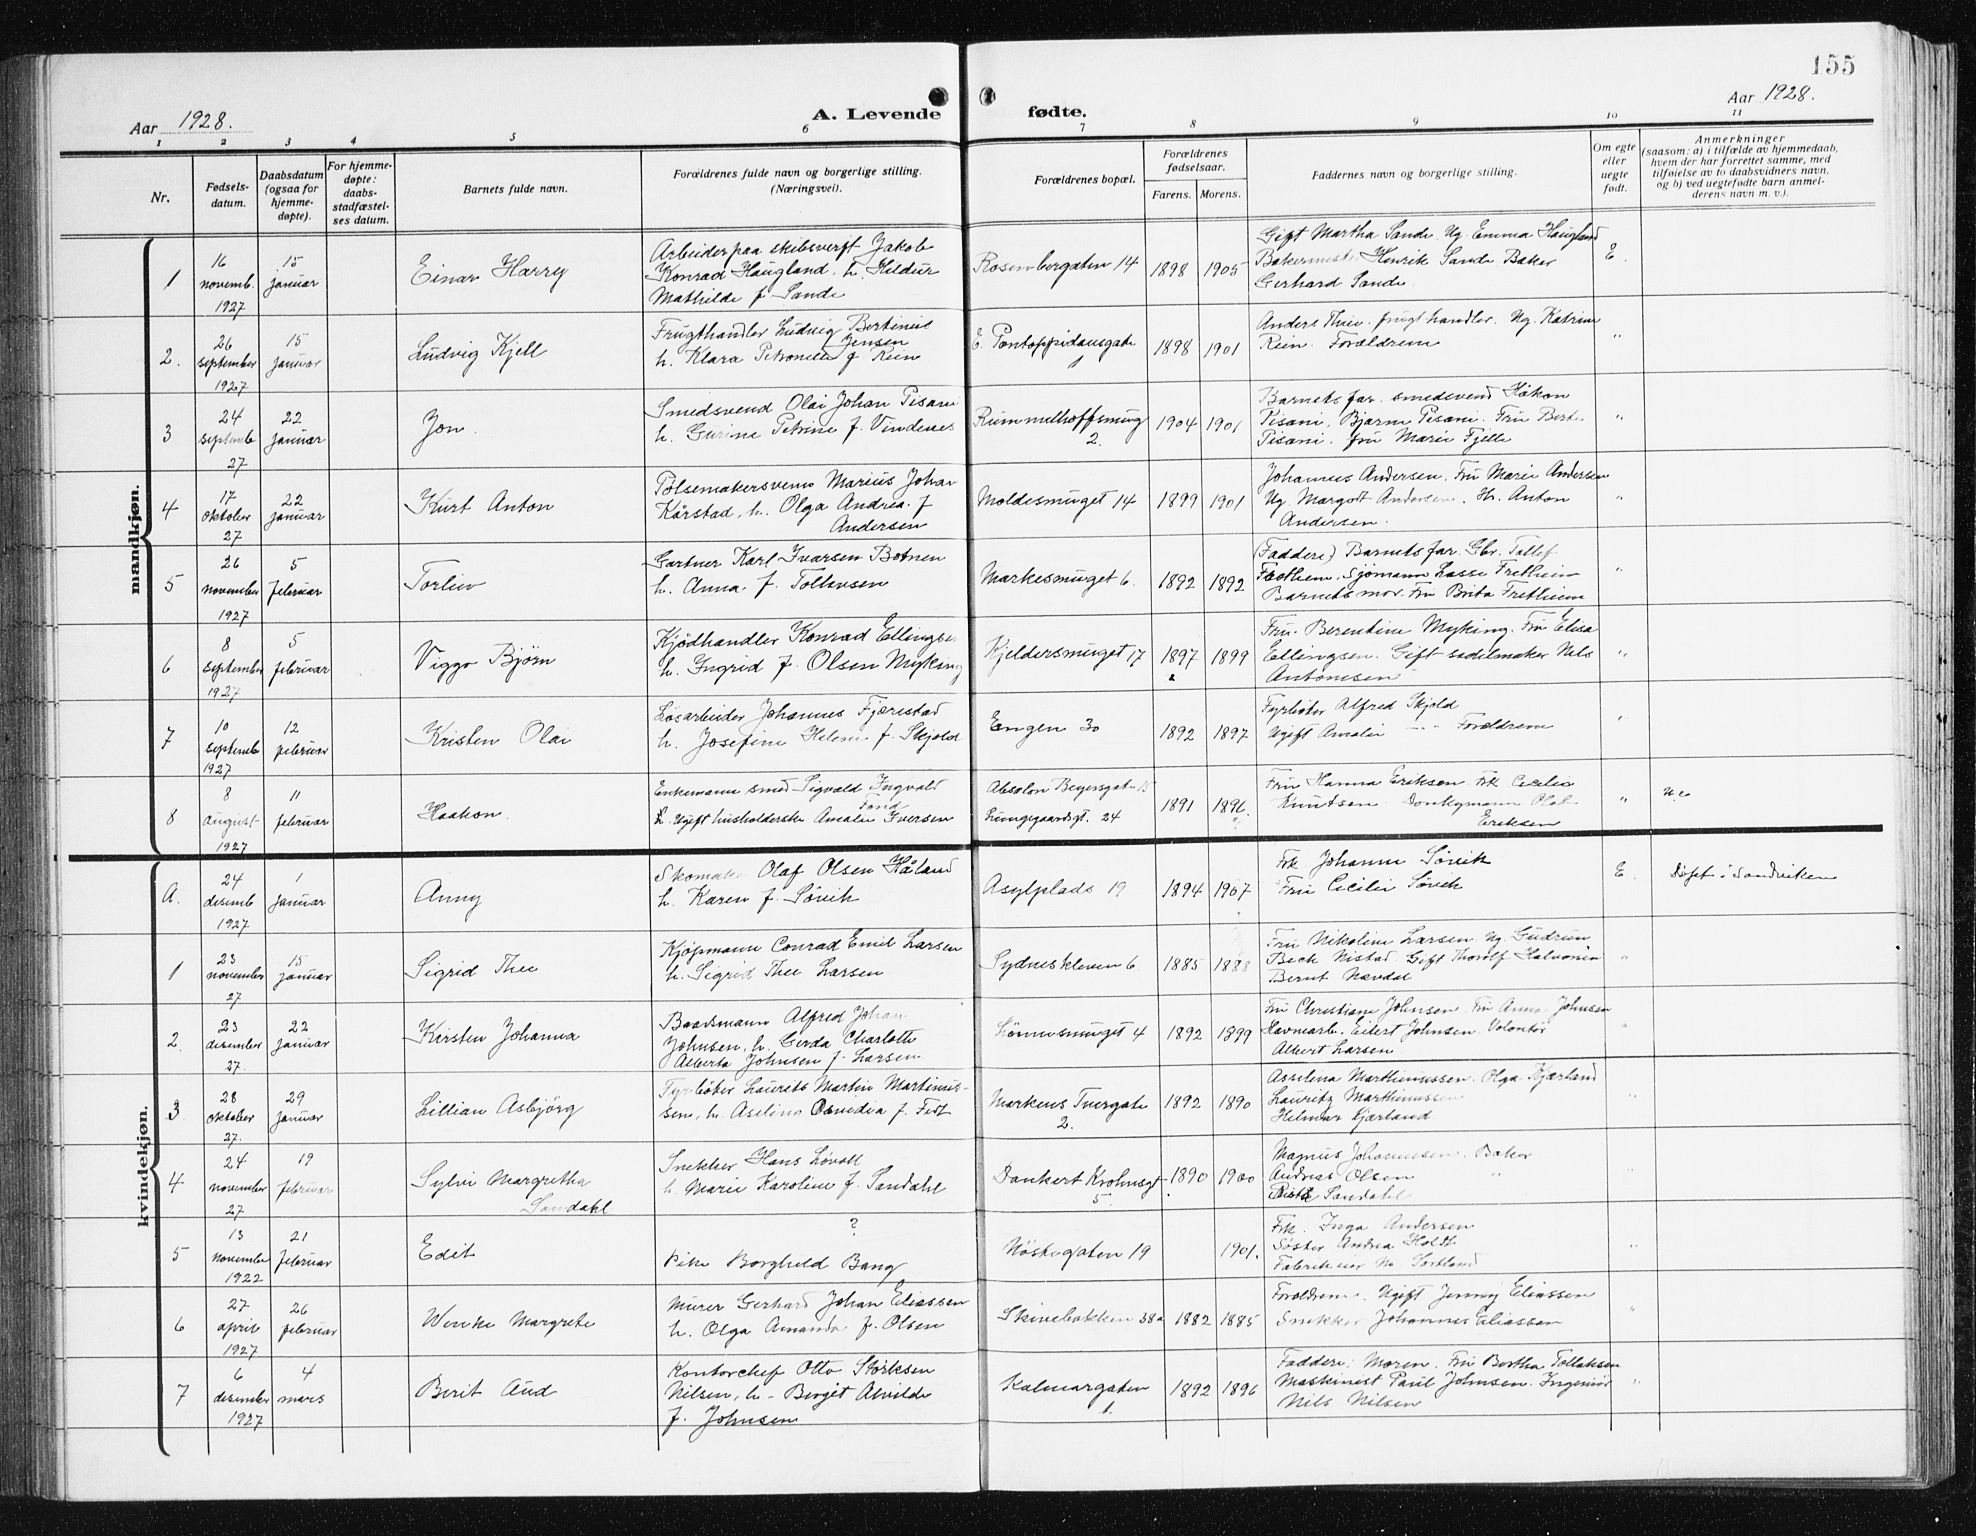 155
Aar 1928.
A. Levende fødte.
Aar 1928.
1 2 3 4 5 6 7 8 9 10 11
Nr.
Fødsels-
datum.
Daabsdatum
(ogsaa for
hjemme-
døpte).
For hjemme-
døpte:
daabs-
stadfæstel-
ses datum.
Barnets fulde navn.
Forældrenes fulde navn og borgerlige stilling.
(Næringsvei).
Forældrenes bopæl.
Forældrenes
fødselsaar.
Farens. Morens.
Faddernes navn og borgerlige stilling.
Om egte
eller
uegte
født.
Anmerkninger
(saasom: a) i tilfælde av hjemmedaab,
hvem der har forrettet samme, med
tilføielse av to daabsvidners navn,
og b) ved uegtefødte barn anmel-
derens navn m. v.).
mandkjøn.
1
16
novemb.
1927
15
januar
Einar Harry
Arbeider paa skibsverft Jakob
Konrad Haugland. h. Hildur
Mathilde f. Sande
Rosenbergaten 14
1898 1905
Gift Martha Sande. Ug. Emma Haugland
Bakermester Henrik Sande Baker
Gerhard Sande.
E.
2.
26
september
1927
15
januar
Ludvig Kjell
Frugthandler Ludvig Bertinius
Jensen
h. Klara Petronelle f. Rein
E. Pontoppidansgate
1
1898 1901
Anders Thue. frugthandler. Ug. Katrine
Rein. Forældrene
"
3
24
septemb
27
22
januar
Jon.
Smedsvend Olai Johan Pisani
h. Gurine Petrine f. Vindenes
Rummelhoffsmug
2.
1904 1901
Barnets far. smedsvend Håkon
Pisani, Bjarne Pisani. Fru Berte
Pisani. fru Marie Fjelle
"
4
17
oktober
27
22
januar
Kurt Anton
Pølsemakersvenn Marius Johan
Kårstad, h. Olga Andrea f.
Andersen
Moldesmuget 14
1899 1901
Johannes Andersen. Fru Marie Andersen
Ug. Margott Andersen. Hr. Anton
Andersen.
"
5
26
november
1927
5
februar
Torleiv
Gartner Karl Ivarsen Botnen
h. Anna f. Tollevsen
Markesmuget 6.
1892 1892
(Faddere) Barnets far. Gbr. Tollef
Fretheim. Sjømann Lasse Fretheim
Barnets mor. Fru Brita Fretheim
"
6
8
september
1927
5
februar
Viggo Bjørn
Kjødhandler Konrad Ellingsen
h. Ingrid f. Olsen Myking
Kjeldersmuget 17
1897 1899
Fru. Berentine Myking. Fru Elisa
Ellingsen. Gift sedelmaker Nils
Antonsen
"
7
10
septemb
1927
12
februar
Kristen Olai
Løsarbeider Johannes Fjærestad
h. Josefine Helene f. Skjold
Engen 30
1892 1897
Fyrbøter Alfred Skjold
Ugift Amalie — Forældrene
"
8
8
august
1927
11
februar
Haakon.
Enkemann smed Sigvald Ingvald
Tond
h. Ugift husholderske Amalie Iversen
Absalon Beyersgate 15
Lungegaardsgt. 24
1891 1896.
Fru Hanna Eriksen. Frk Cecilie
Knutsen. Donkeymann Olaf
Eriksen
"
U.e
kvindekjøn.
A.
24
desemb
1927
1
januar
Anny
Skomaker Olaf Olsen Håland
h. Karen f. Sørvik
Asylplads 19
1894 1907
Frk Johanne Sørvik
Fru Cecilie Sørvik
E.
Døpt i Sandviken
1
23
november
27
15
januar
Sigrid Thee
Kjøpmann Conrad Emil Larsen
h. Sigrid Thee Larsen
Sydneskleven 6.
1885 1888
Fru Nikoline Larsen Ug. Gudrun
Beck Nistad Gift Thorolf Halvorsen
Bernt Nævdal
"
2.
23
desember
27.
22
januar
Kirsten Johanna
Baadsmann Alfred Johan
Johnsen, h. Gerda Charlotte
Alberta Johnsen f. Larsen
Lønnesmuget 4
1892 1899
Fru Christiane Johnsen. Fru Anna Johnsen
Havnearb. Eilert Johnsen. Volontør
Albert Larsen
"
3
28
oktober
27.
29
januar
Lillian Asbjörg
Fyrbøter Laurits Martin Martinus-
sen, h. Aseline Ovedia f. Fedt
Markens Tvergate
2.
1892 1890
Asselina Marthinussen. Olga Kjærland
Lauritz Marthinussen
Helmer Kjærland.
"
4
24
november
27
19
februar
Sylvi Margretha
Sandahl
Snekker Hans Løvoll
h. Marie Karoline f. Sandahl
Dankert Krohnsgt
5.
1890 1900
Magnus Johannesen. Baker
Andreas Olsen "
Sandahl
"
5
13
november
1922
21
februar
Edit
?
Pike Borghild Bang
Nøstegaten 19
1901.
Frk. Inga Andersen
Søster Andrea Holdt
Sortland
"
6
27
april
1927
26
februar
Wencke Margrete
Murer Gerhard Johan Eliassen
h. Olga Amanda f. Olsen
Skivebakken 38a
1882 1885
Forældrene. Ugift Jenny Eliassen
Snekker Johannes Eliassen
"
7
6
desember
1927
4
mars
Berit Aud
Kontorchef Otto Størksen
Nilsen, h. Berget Alvilde
f. Johnsen
Kalmargaten
1.
1892 1896
Faddere: Moren. Fru Bertha Tollaksen
Maskinist Paul Johnsen. Ingeniør
Nils Nilsen
"